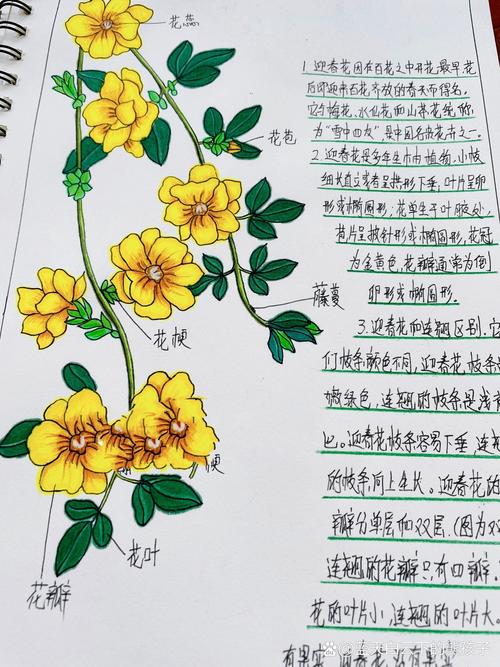 花蕊
花苞
藤蔓
花梗
梗
花叶
花瓣
1. 迎春花因在百花之中开花最早花
后即迎来百花齐放的春天而得名,
它与梅花、水仙花和山茶花统称
为"雪中四友",是中国名贵花卉之一。
2. 迎春花是多年生木本植物,小枝
细长直立或者呈拱形下垂,叶片呈卵
形或椭圆形;花单生于叶腋处,
苞片呈披针形或椭圆形,花冠
为金黄色,花瓣通常为倒
卵形或椭圆形.
3. 迎春花和连翘区别,它
们枝条颜色不同,迎春花枝条
嫩绿色,连翘的枝条是浅
色。迎春花枝条容易下垂,连
的枝条向上生长。迎春花的
瓣分单层和双层.(图为双
连翘的花瓣只有四瓣.
花的叶片小,连翘的叶片长。
有果实